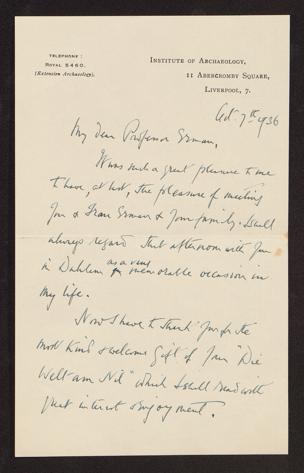 TELEPHONE:
ROYAL 5460.
(Extension Archæology).
INSTITUTE OF ARCHAEOLOGY,
11 ABERCROMBY SQUARE,
LIVERPOOL, 7.
Oct 7th 1936
My dear Professor Erman,
It was such a great pleasure to me
to have, at last, the pleasure of meeting
you & Frau Erman & your family. I shall
always regard that afternoon with you
in Dahlem as a very memorable occasion in
my life.
Now I have to thank you for the
most kind & welcome gift of your "Die
Welt am Nil" which I shall read with
great interest & enjoyment.